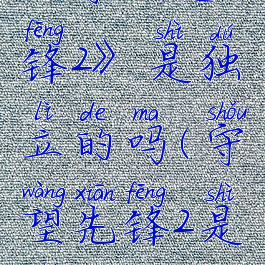 fēng shì dú
锋2》是独
lì de ma shǒu
立的吗(守
wàng xiān fēng shì
望先锋2是